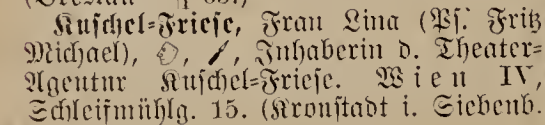 Kuschel-Friese, Frau Lina (Ps. Fritz
Michael), Inhaberin d. Theater-
Agentur Kuschel-Friese. Wien IV,
Schleifmühlg. 15. (Kronstadt i. Siebenb.